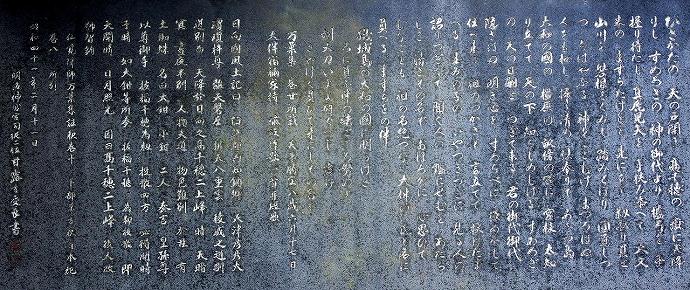 ひさかたの 天の戸開き 高千穂の 嶽に天降
りし すめろきの 神の御代より 櫨弓を 手
握り持たし 真鹿児矢を 手挟み添へて 大久
米の ますらたけをを 先に立て 靫取り負せ
山川を 磐根さくみて 踏みとほり 国覓しつ
つ ちはやぶる 神をことむけ まつろはぬ
人をも和し 掃き清め 仕へ奉りて あきづ島
大和の国の 橿原の 畝傍の宮に 宮柱 太知
り立てて 天の下 知らしめしける すめろき
の 天の日嗣と つぎて来る 君の御代御代
隠さはぬ 明き心を すめらへに 極め尽して
仕へ来る 祖のつかさと 言立てて 授け賜へ
る うみのこの いやつぎつぎに 見る人の
語りつぎてて 聞く人の 鑑にせむを あたら
しき 清きその名そ おほろかに 心思ひて
むなことも 祖の名絶つな 大伴の 氏と名に
負へる ますらをの伴
磯城島の大和の国に明らけき
名に負ふ伴の緒こころ努めよ
剣大刀いよよ研ぐべし古ゆ
さやけく負ひて来にしその名そ
万葉集 巻二十所載 天平勝宝八歳六月十七日
大伴宿禰家持
日向國風土記曰 臼杵郡内知鋪郷 天津彦々火
瓊瓊杵尊 離天磐座 排天八重雲 稜威之道別
道別而 天降於日向之高千穂二上峰 時 天暗
冥 晝夜不別 人物失道 物色難別 於茲 有
土蜘蛛 名曰大鉗 小鉗 二人 奏言 皇孫尊
以尊御手 抜稲千穂為籾 投散四方 必得開晴
于時 如大鉗等所奏 搓千穂稲 為籾投散 即
天開晴 日月照光 因曰高千穂二上峰 後人改
號智鋪
仙覚律師万葉集註釈巻十 卜部
巻八 所引
昭和四十 年 月十一日
明治神宮宮司 甘露寺受長書